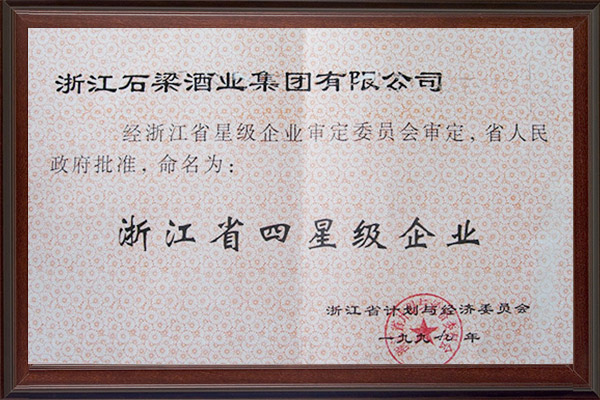 浙江石梁酒业集团有限公司
经浙江省星级企业审定委员会审定，省人民
政府批准，命名为：
浙江省四星级企业
浙江省计划与经济委员会
一九九 年